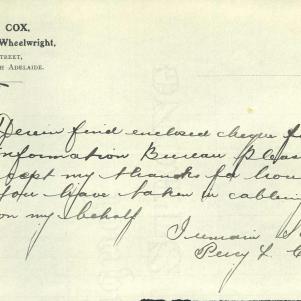 COX,
Wheelwright,
STREET,
H ADELAIDE.
Herein find enclosed cheque fo
Information Bureau Pleas
cept my thanks for
you have taken in cabling
on my behalf
I remain
Percy L. C